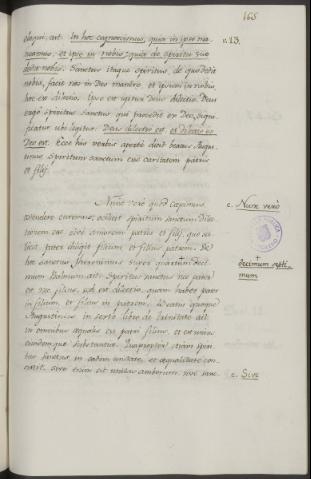 168
eloqui, ait. In hoc cognoscimus, quia in ipso ma-
neamus, et ipse in nobis, quia de spiritu suo
dedit nobis. Sanctus itaque spiritus, de quo dedit
nobis, facit nos in Deo manere, et ipsum in nobis,
hoc est dilectio. Ipse est igitur Deus dilectio. Deus
ergo spiritus sanctus qui procedit ex Deo, signi-
ficatur ubi legitur. Deus dilectio est, et dilectio ex
Deo est. Ecce his verbis aperte dicit beatus Augu-
stinus spiritum sanctum esse caritatem patris
et filij.
v. 13.
Nunc vero quod coepimus
ostendere curemus, scilicet spiritum sanctum dile-
ctionem esse sive amorem patris et filij, quo sci-
licet pater diligit filium et filius patrem. De
hoc sanctus Hieronimus super
mum Psalmum ait. Spiritus sanctus nec pater
est nec filius, sed est dilectio, quam habet pater
in filium, et filius in patrem. Beatus quoque
Augustinus in sexto libro de trinitate ait
in omnibus aequalis est patri filius, et est unius
eiusdemque substantiae. Quapropter etiam spiri-
tus sanctus in eadem unitate, et aequalitate con-
sistit. sive enim sit unitas amborum, sive sanc-
c. Nunc vero
decimum septi-
mum
c. Sive